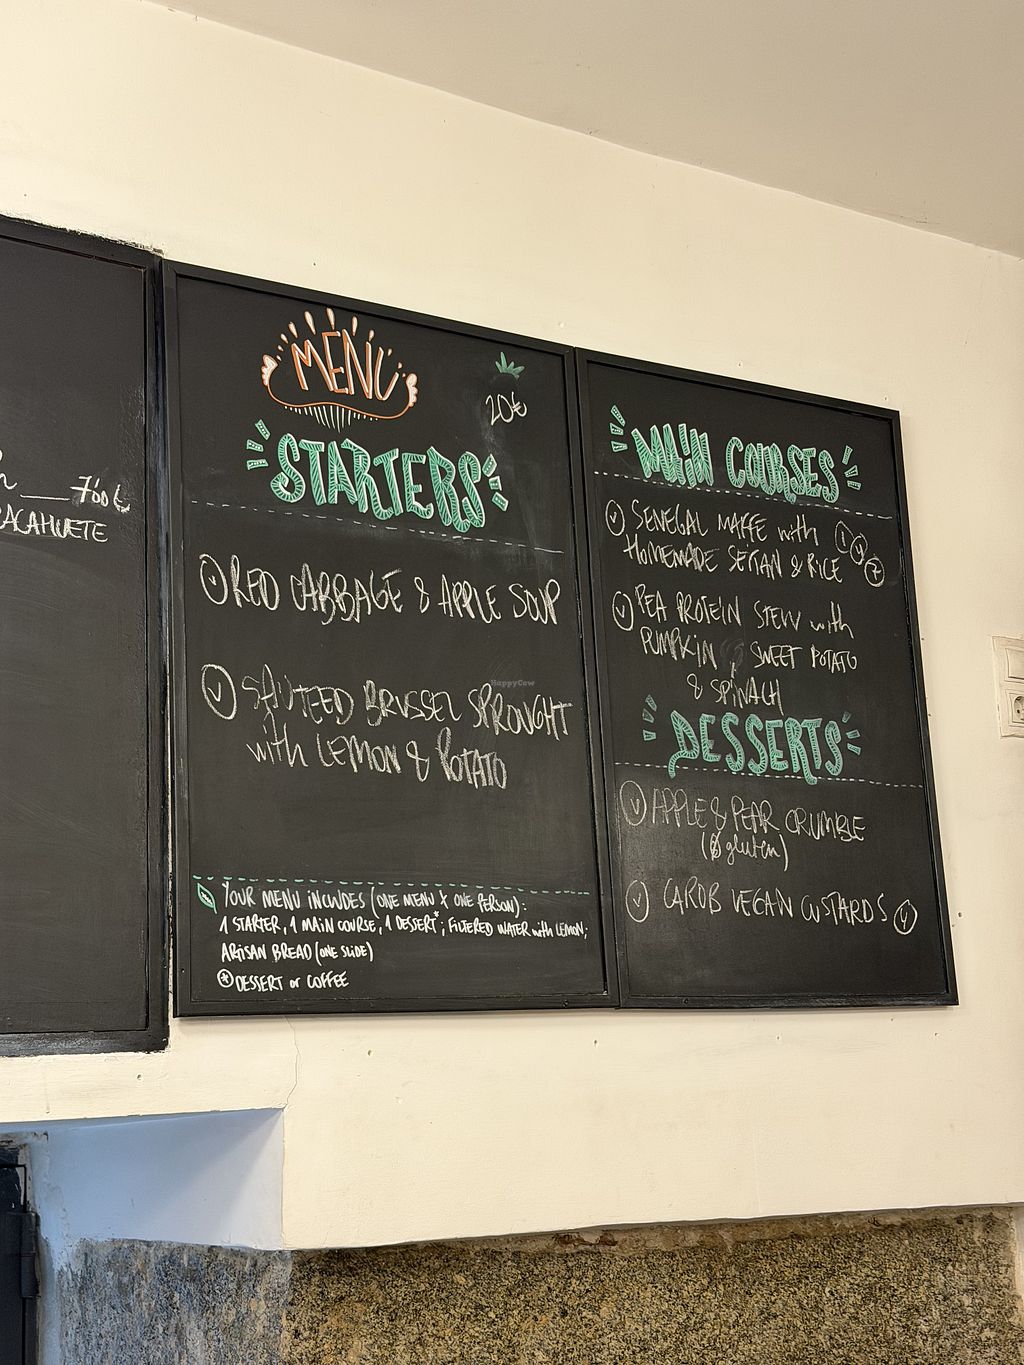 7'00€
CACAHUETE
MENU
20€
STARTERS
V RED CABBAGE & APPLE SOUP
V SAUTEED BRUSSEL SPROUGHT
with LEMON & POTATO
YOUR MENU INCLUDES (ONE MENU X ONE PERSON):
1 STARTER, 1 MAIN COURSE, 1 DESSERT*, FILTERED WATER with LEMON,
ARTISAN BREAD (ONE SLIDE)
* DESSERT or COFFEE
MAIN COURSES
V SENEGAL MAFFE with 1 4 7
HOMEMADE SEITAN & RICE
V PEA PROTEIN STEW with
PUMPKIN, SWEET POTATO
& SPINACH
DESSERTS
V APPLE & PEAR CRUMBLE
(Ø gluten)
V CAROB VEGAN CUSTARDS 4
HappyCow